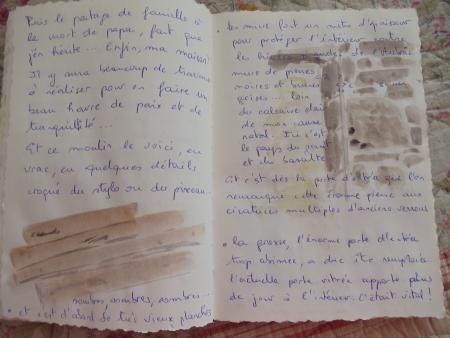 Puis le partage de famille à
la mort de papa, fait que
j'en hérite... Enfin, ma maison!
Il y aura beaucoup de travaux
à réaliser pour en faire un
beau havre de paix et de
tranquillité...
Et ce moulin le voici, en
vrac, en quelques détails
croqué du stylo ou du pinceau...
sombres, sombres, sombres...
• et c'est d'abord de très vieux planches
• les murs font un mètre d'épaisseur
pour protéger l'intérieur contre
les
murs de pierres
noires et brunes
grises... loin
du calcaire clair
de mon causse
natal. Ici c'est
le pays du
et du basalte
Et c'est dès la porte d'entrée que l'on
remarque cette énorme pierre aux
cicatrices multiples d'anciens verrous
• la grosse, l'énorme porte d'entrée
trop abîmée, a due être remplacée
l'actuelle porte vitrée apporte plus
de jour à l'intérieur. C'était vital!